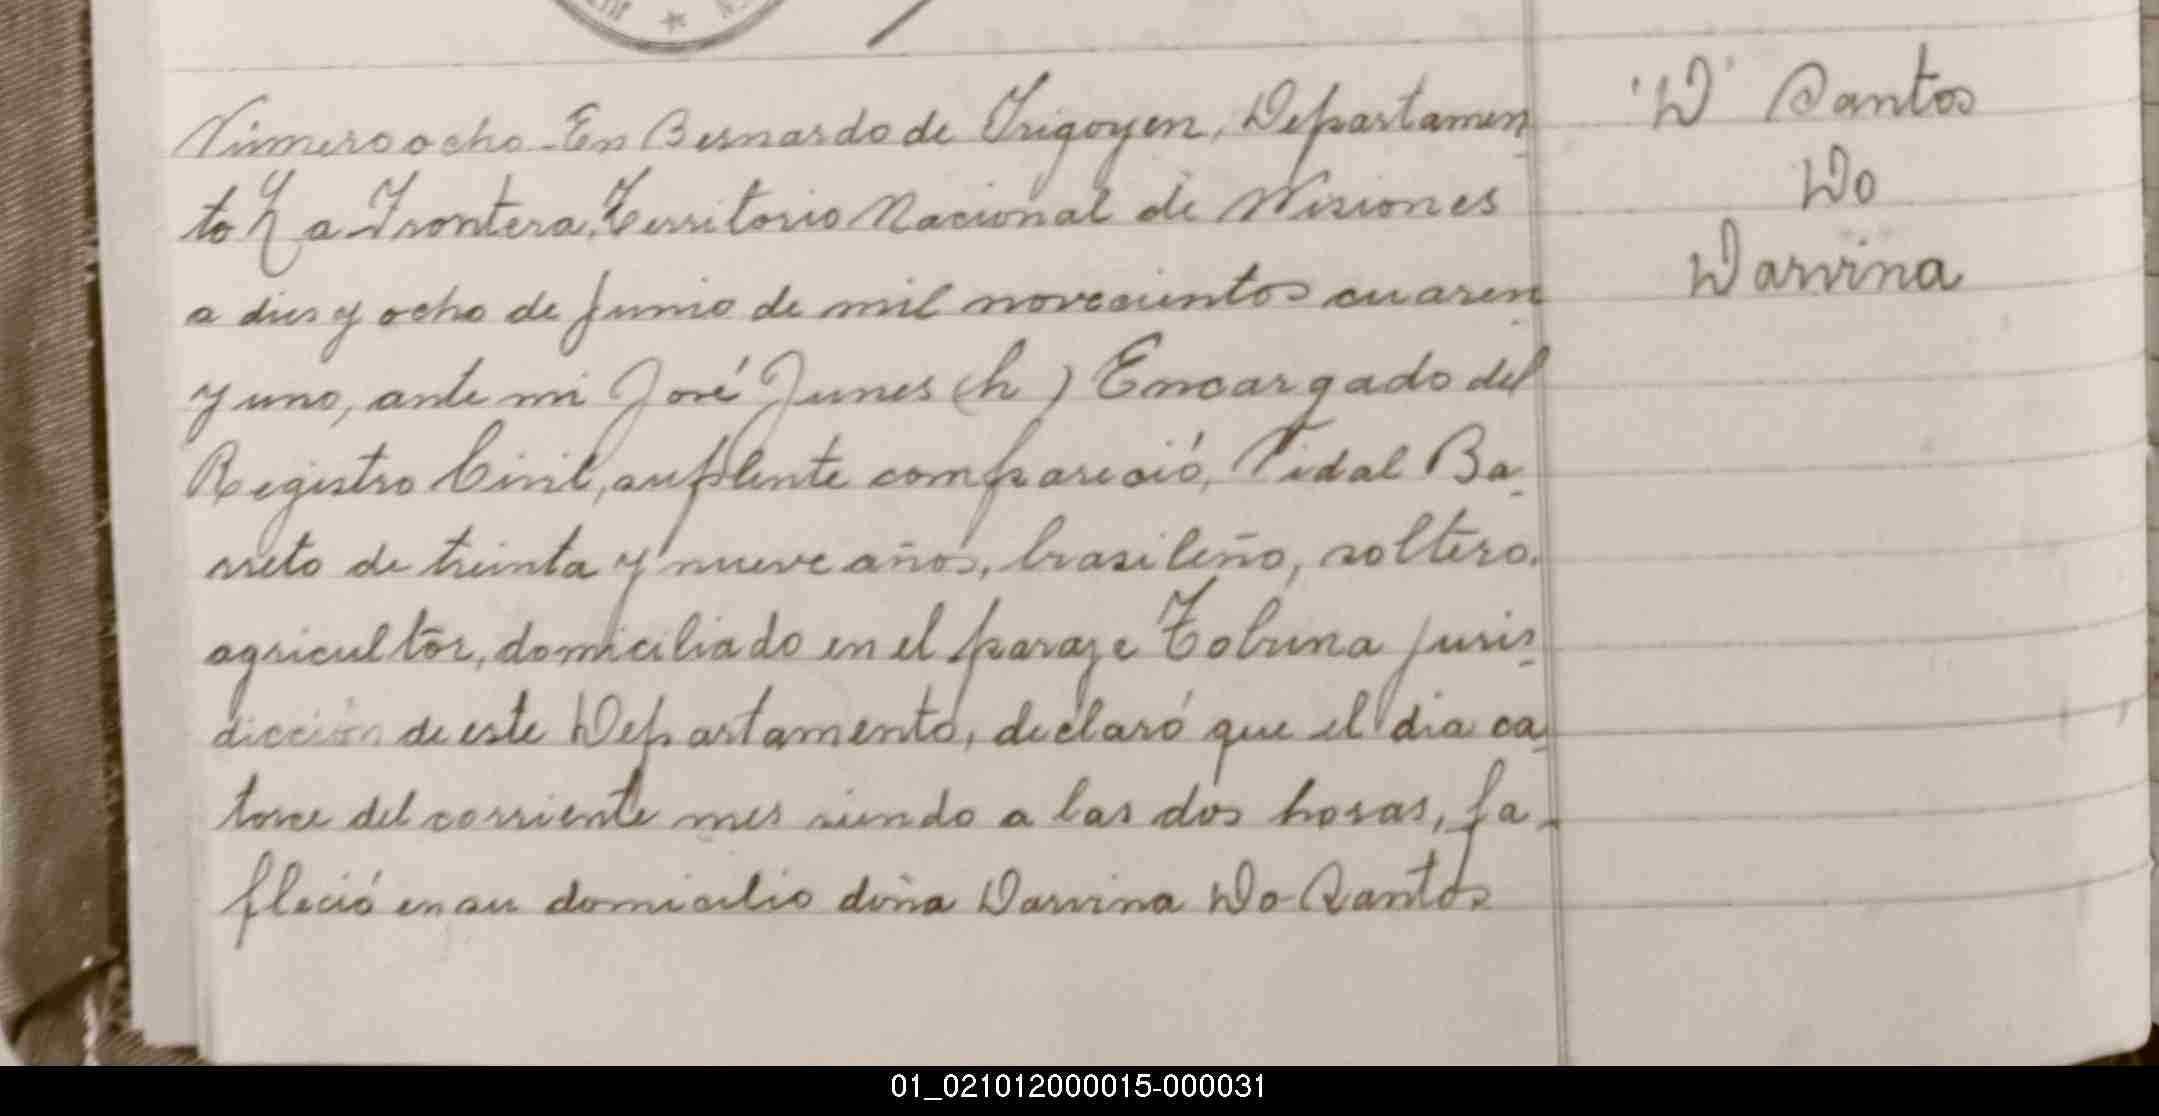 Número ocho - En Bernardo de Irigoyen, Departamen-
to La Frontera, Territorio Nacional de Misiones
a dies y ocho de junio de mil novecientos cuaren-
y uno, ante mi José Junes (h) Encargado del
Registro Civil, suplente compareció, Vidal Ba-
rreto de treinta y nueve años, brasileño, soltero,
agricultor, domiciliado en el paraje Tobuna juris-
dicción de este Departamento, declaró que el dia ca-
torce del corriente mes siendo a las dos horas, fa-
lleció en su domicilio doña Darvina Do Santos
"D" Santos
Do
Darvina
01_021012000015-000031